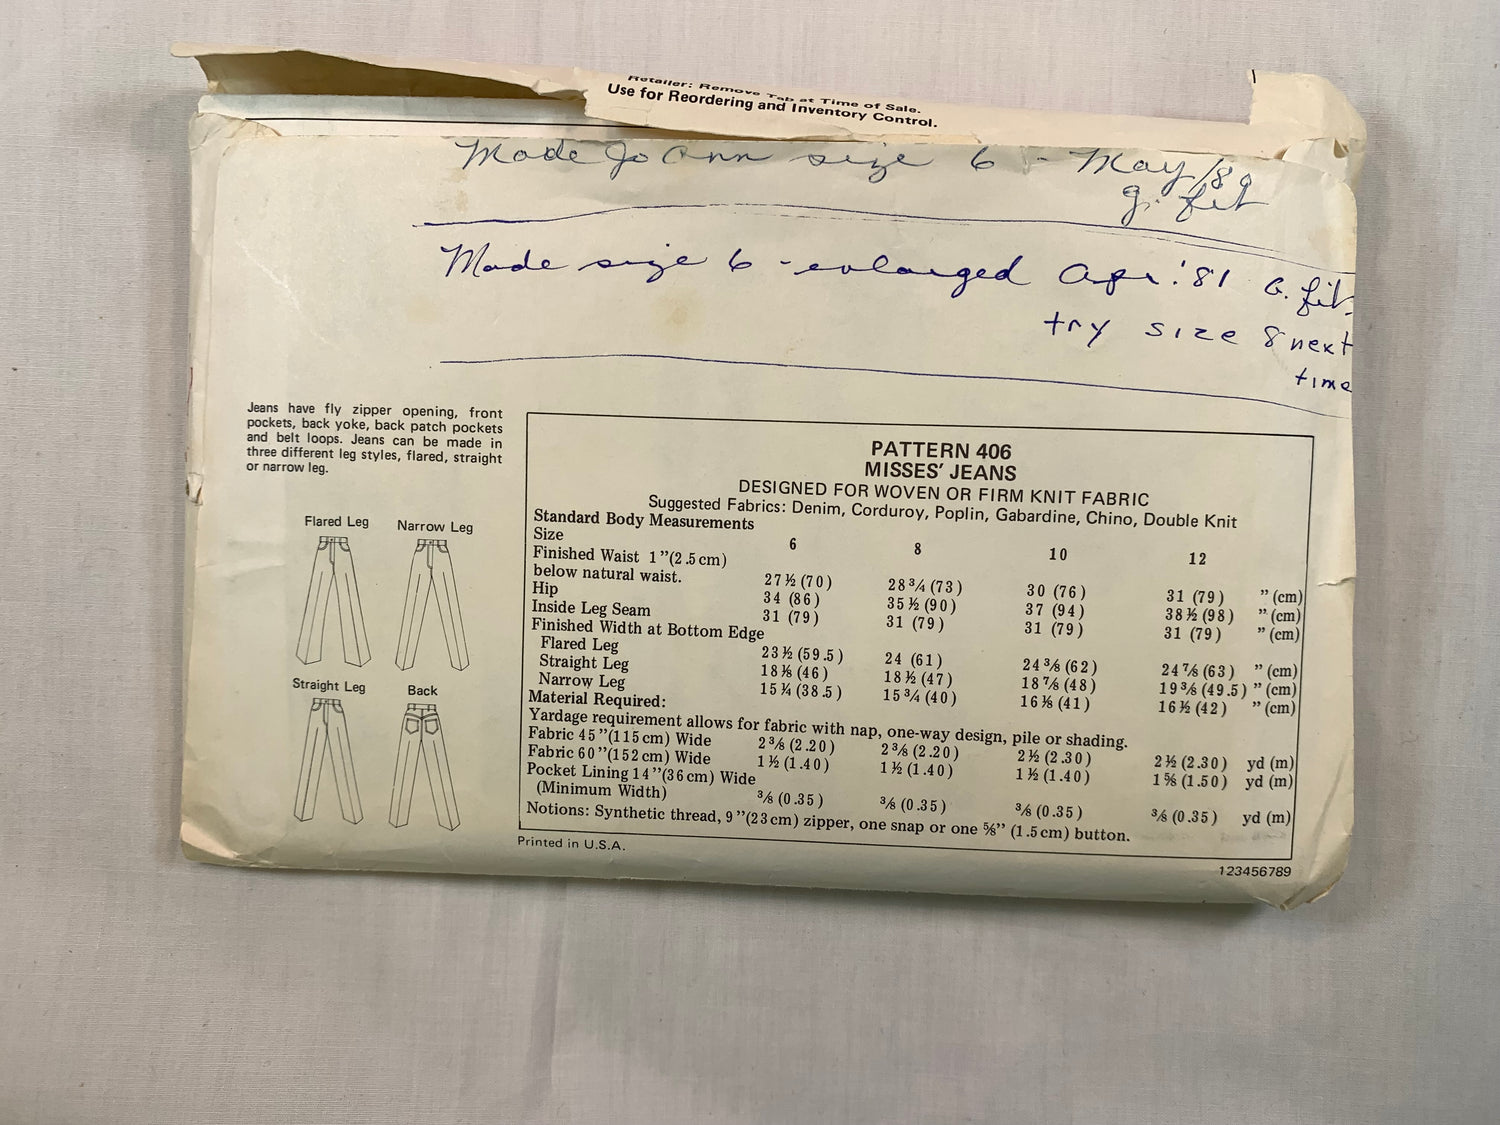 Retailer: Remove Tab at Time of Sale.
Use for Reordering and Inventory Control.
Made Jo Ann size 6 - May/80
g. fit
Made size 6 - enlarged Apr. '81 G. fit.
try size 8 next
time
Jeans have fly zipper opening, front
pockets, back yoke, back patch pockets
and belt loops. Jeans can be made in
three different leg styles, flared, straight
or narrow leg.
Flared Leg Narrow Leg
Straight Leg Back
PATTERN 406
MISSES' JEANS
DESIGNED FOR WOVEN OR FIRM KNIT FABRIC
Suggested Fabrics: Denim, Corduroy, Poplin, Gabardine, Chino, Double Knit
Standard Body Measurements
Size 6 8 10 12
Finished Waist 1" (2.5 cm)
below natural waist. 27 ½ (70) 28 ¾ (73) 30 (76) 31 (79) " (cm)
Hip 34 (86) 35 ½ (90) 37 (94) 38 ½ (98) " (cm)
Inside Leg Seam 31 (79) 31 (79) 31 (79) 31 (79) " (cm)
Finished Width at Bottom Edge
Flared Leg 23 ½ (59.5) 24 (61) 24 ⅜ (62) 24 ⅞ (63) " (cm)
Straight Leg 18 ⅛ (46) 18 ½ (47) 18 ⅞ (48) 19 ⅜ (49.5) " (cm)
Narrow Leg 15 ¼ (38.5) 15 ¾ (40) 16 ⅛ (41) 16 ½ (42) " (cm)
Material Required:
Yardage requirement allows for fabric with nap, one-way design, pile or shading.
Fabric 45" (115 cm) Wide 2 ⅜ (2.20) 2 ⅜ (2.20) 2 ½ (2.30) 2 ½ (2.30) yd (m)
Fabric 60" (152 cm) Wide 1 ½ (1.40) 1 ½ (1.40) 1 ½ (1.40) 1 ⅝ (1.50) yd (m)
Pocket Lining 14" (36 cm) Wide
(Minimum Width) ⅜ (0.35) ⅜ (0.35) ⅜ (0.35) ⅜ (0.35) yd (m)
Notions: Synthetic thread, 9" (23 cm) zipper, one snap or one ⅝" (1.5 cm) button.
Printed in U.S.A.
123456789